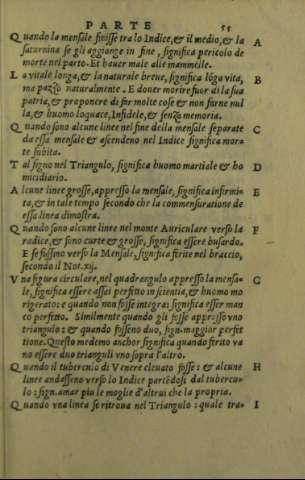 PARTE 55
Quando la mensale finisse tra lo Indice, & il medio, & la A
saturnina se gli aggionge in fine, significa pericolo de
morte nel parto. Et hauer male alle mammelle.
La vitale longa, & la naturale breue, significa lōga vita, B
ma pazzo naturalmente. E douer morire fuor di la sua
patria, & proponere di fir molte cose & non farne nul
la, & huomo loquace, Infidele, & senza memoria.
Quando sono alcune linee nel fine della mensale separate C
da essa mensale & ascendeno nel Indice significa mora
te subita.
Tal signo nel Triangulo, significa huomo martiale & ho D
micidiario.
Alcune linee grosse, appresso la mensale, significa infirmi E
ta, & in tale tempo secondo che la commensuratione de
essa linea dimostra.
Quando sono alcune linee nel monte Auriculare verso la F
radice, & sono curte & grosse, significa essere busardo.
E se fussino verso la Mensale, significa firite nel braccio,
secondo il Not. xij.
Vna figura circulare, nel quadrengulo appresso la mensa- C
le, significa essere assai perfitto in scientia, & huomo mo
rigerato: e quando non fosse integra: significa esser man
co perfitto. Similmente quando gli fosse appresso vno
triangulo: & quando fosseno duo, sign. maggior perfet
tione. Questo medemo anchor significa quando sirito va
no essere duo trianguli vno sopra l'altro.
Quando il tuberculo di Venere eleuato fosse: & alcune H
linee andasseno verso lo Indice partēdosi dal tubercu-
lo: sign. amar piu le moglie d'altrui che la propria.
Quando vna linea se ritroua nel Triangulo: quale tra- I